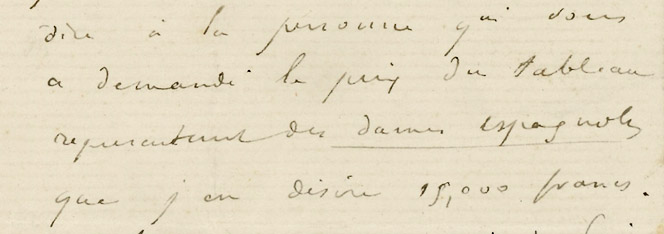 dire à la personne qui vous
a demandé le prix du tableau
representant des dames espagnoles
que j'en désire 15,000 francs.